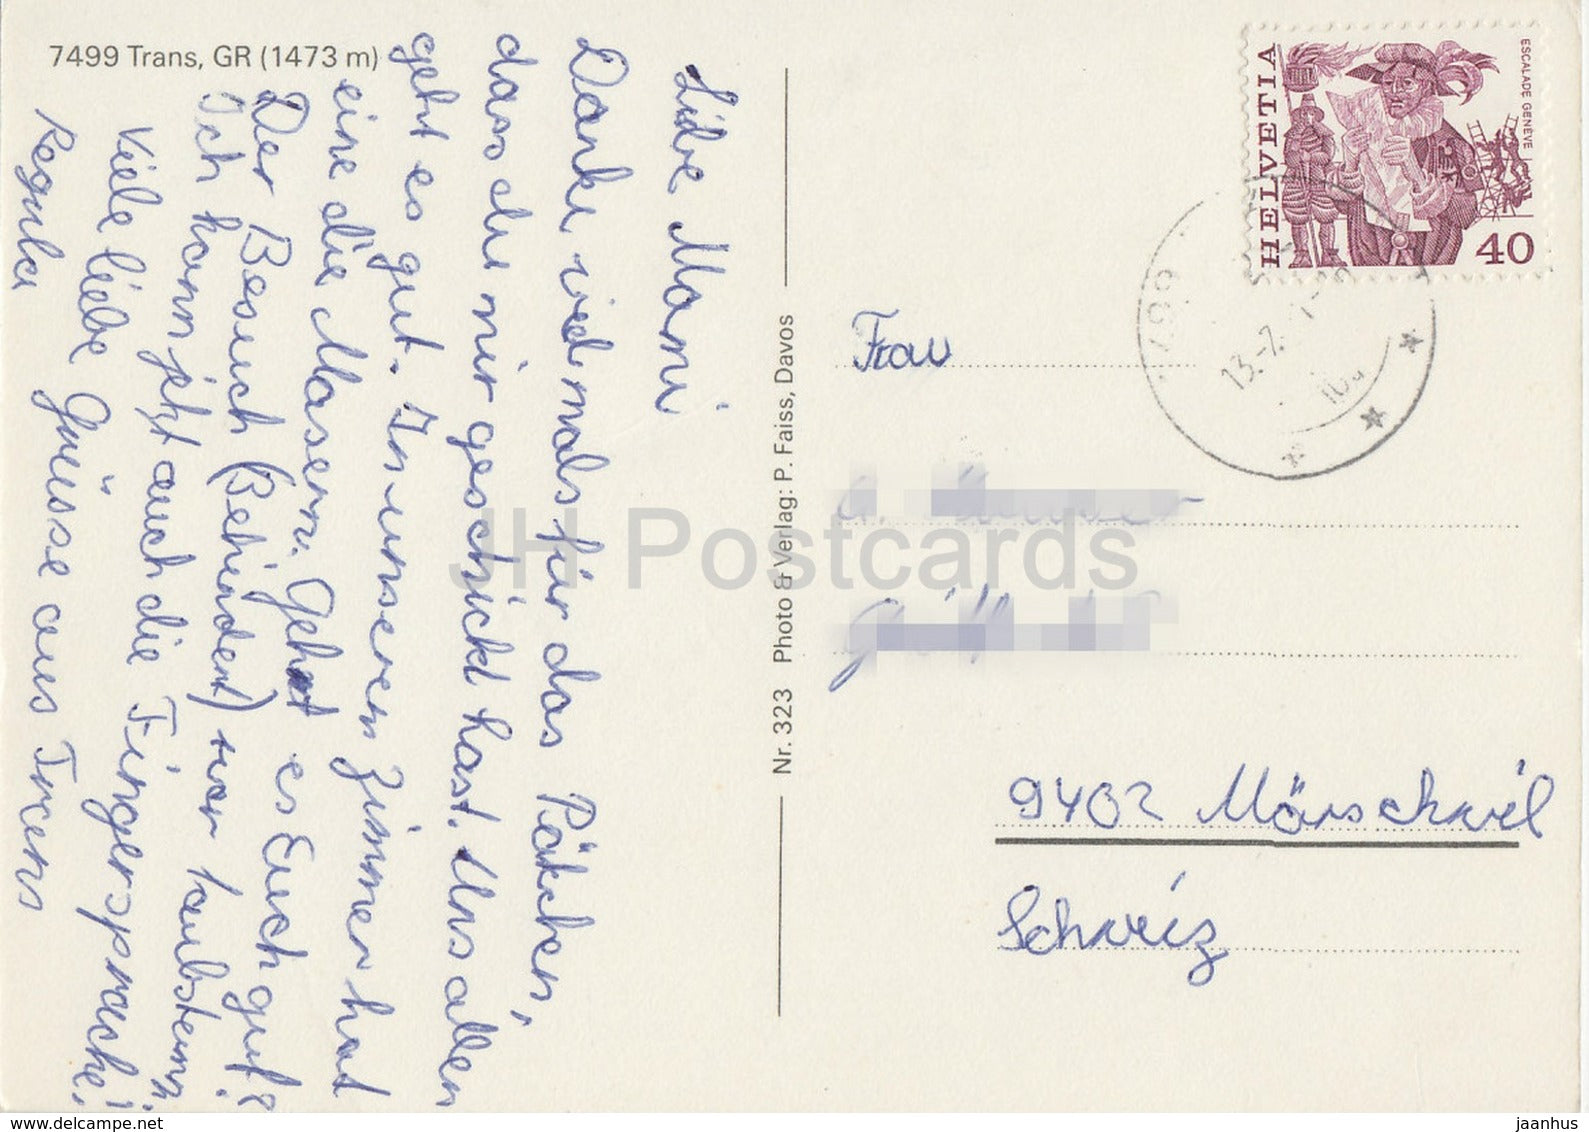 7499 Trans, GR (1473 m)
Liebe Mami
Danke vielmals für das Päckchen,
dass du mir geschickt hast. Uns allen
geht es gut. In unserem Zimmer hat
eine die Masern. Geht es Euch gut?
Der Besuch (Behindert) war taubstumm.
Ich kann jetzt auch die Fingersprache!
Viele liebe Grüsse aus Trans
Regula
Nr. 323 Photo & Verlag: P. Faiss, Davos
HELVETIA
ESCALADE GENÈVE
40
13.-7.
Frau
9402 Mörschwil
Schweiz
JH Postcards
www.delcampe.net
jaanhus